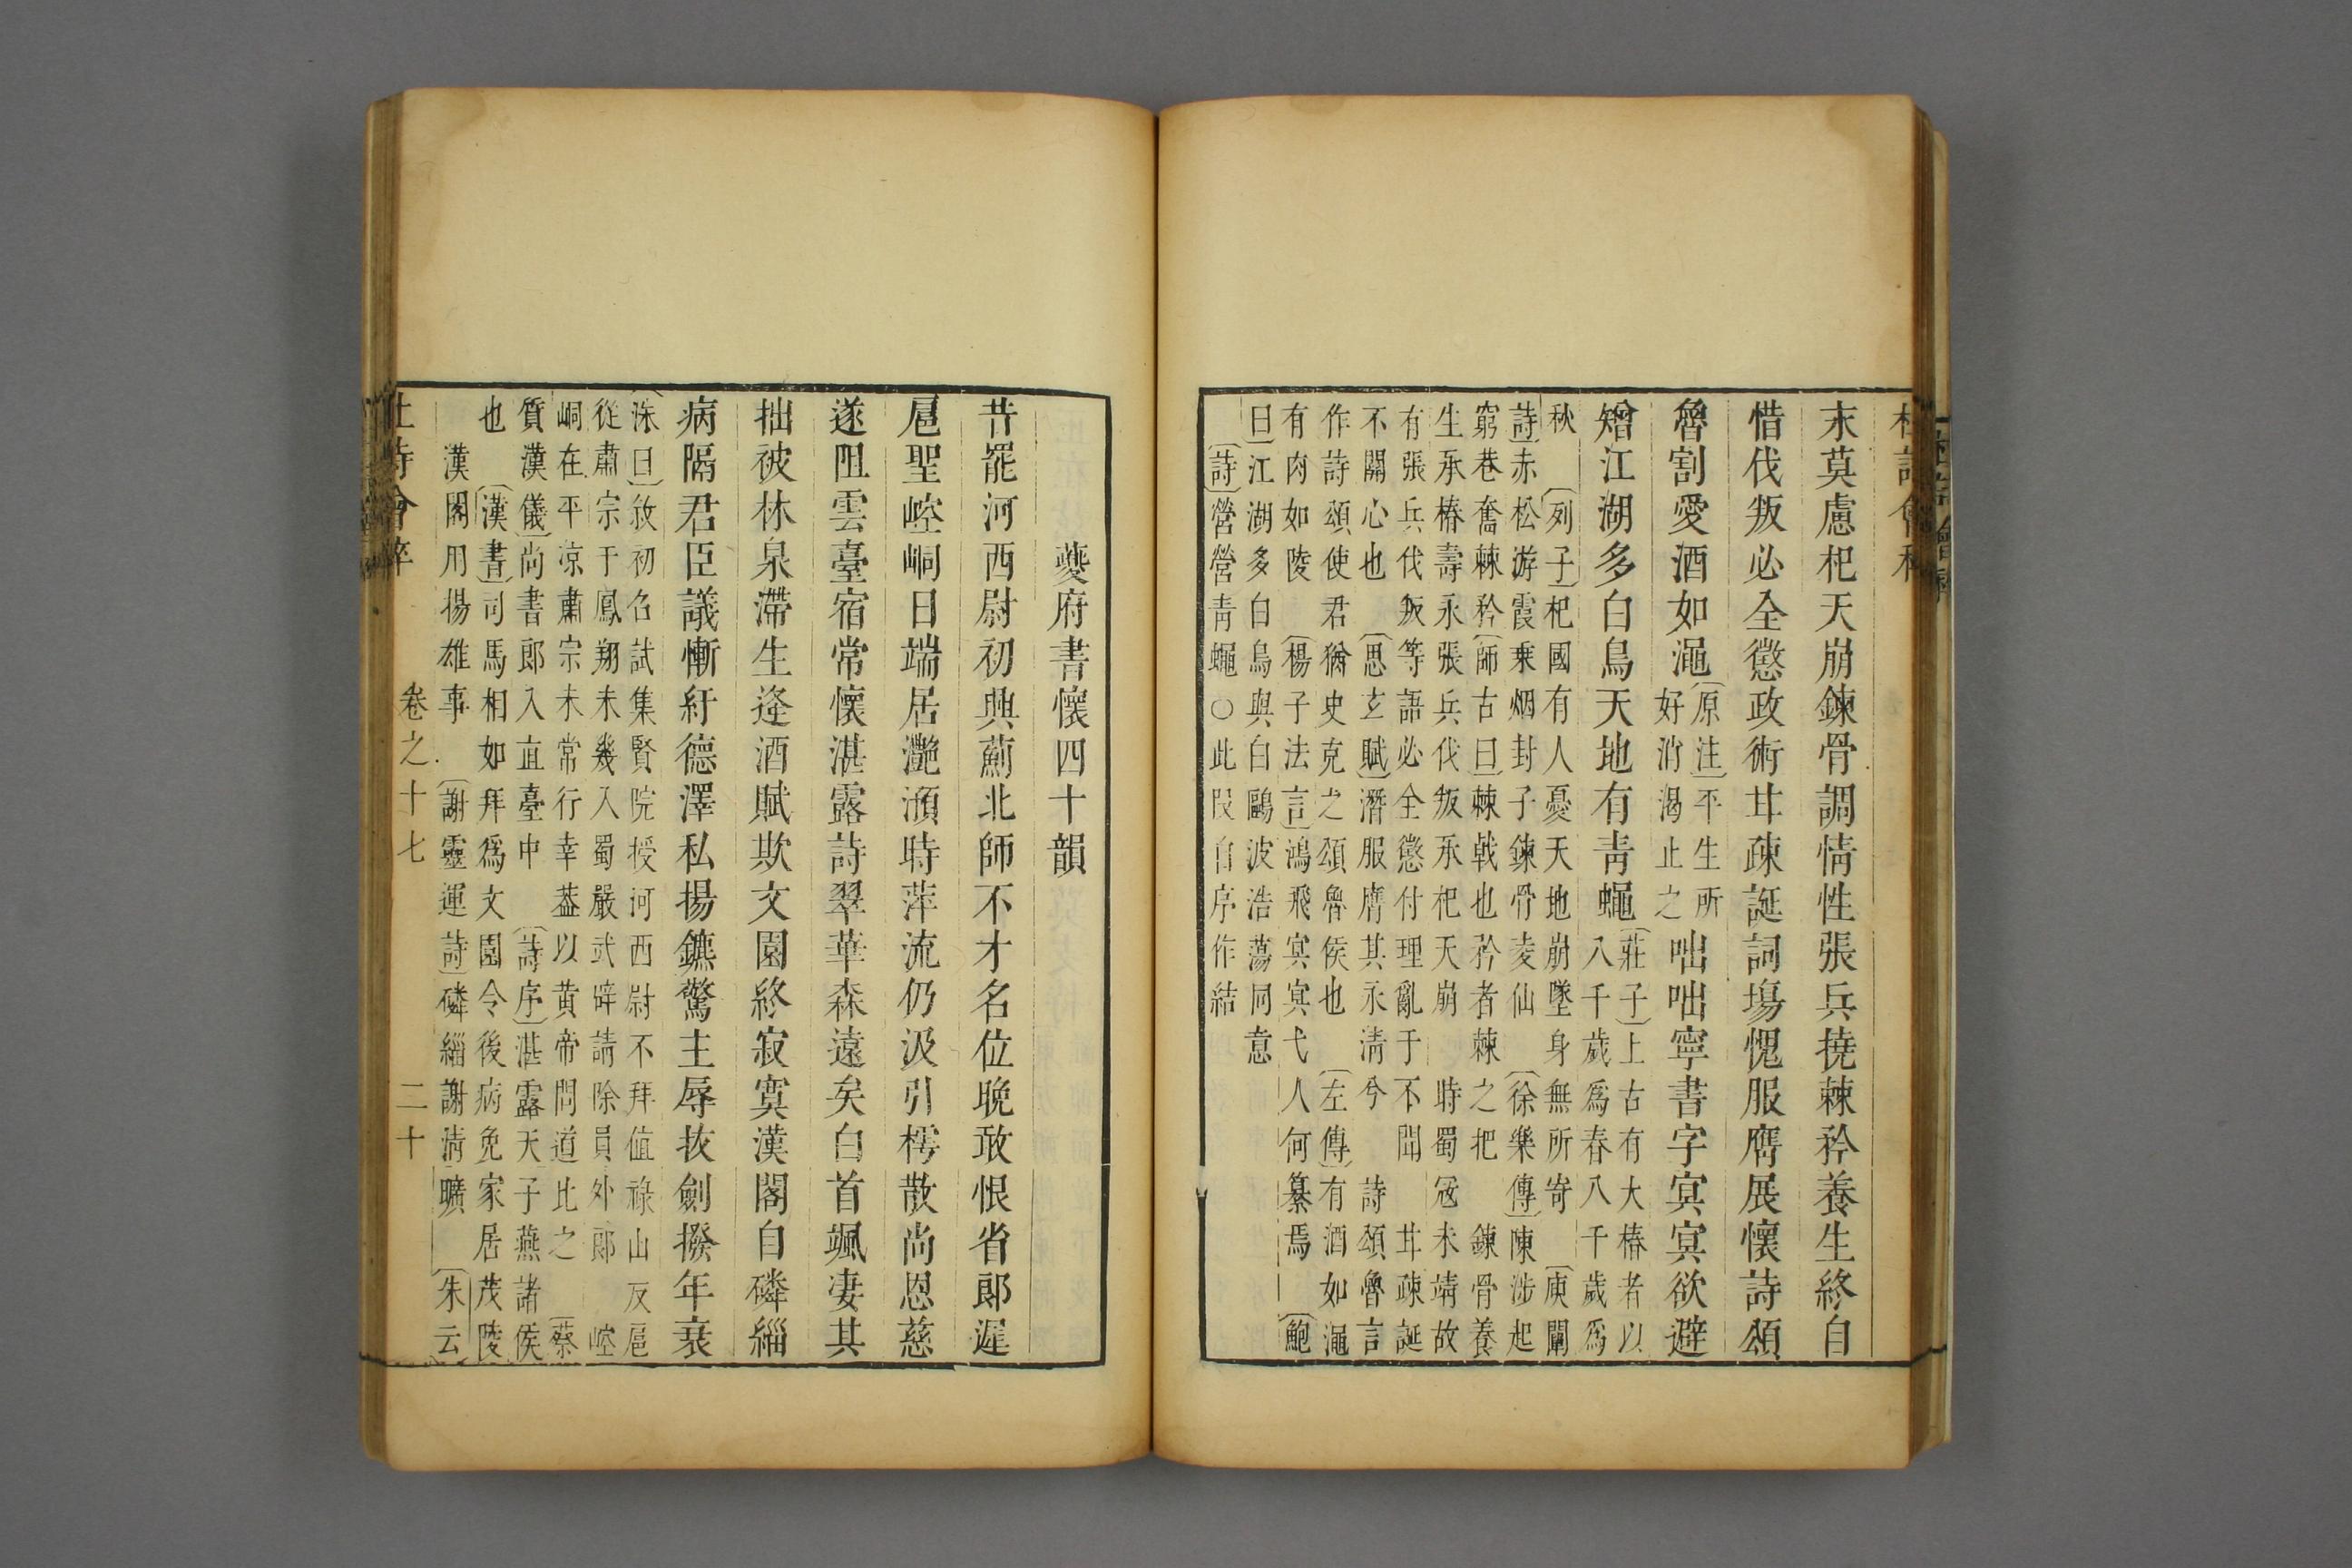 末莫慮杞天崩鍊骨調情性張兵撓棘矜養生終自
惜伐叛必全懲政術甘疎誕詞塲愧服膺展懷詩頌
魯割愛酒如澠
原注平生所
好消渴止之
咄咄寧書字冥冥欲避
矰江湖多白鳥天地有青蠅
莊子上古有大椿者以
八千歲爲春八千歲爲
秋 列子杞國有人憂天地崩墜身無所寄 庾闡
詩赤松游霞乘烟封子鍊骨凌仙 徐樂傳陳涉起
窮巷奮棘矜師古曰棘戟也矜者棘之把 鍊骨養
生承椿壽永張兵伐叛承杞天崩 時蜀宼未靖故
有張兵伐叛等語必全懲付理亂于不聞 甘疎誕
不關心也 思玄賦潛服膺其永清兮 詩頌魯言
作詩頌使君猶史克之頌魯侯也 左傳有酒如澠
有肉如陵 楊子法言鴻飛冥冥弋人何纂焉 鮑
曰江湖多白鳥與白鷗波浩蕩同意
詩營營青蠅○此段自序作結
夔府書懷四十韻
昔罷河西尉初興薊北師不才名位晚敢恨省郎遲
扈聖崆峒日端居灔澦時萍流仍汲引樗散尚恩慈
遂阻雲臺宿常懷湛露詩翠華森遠矣白首颯凄其
拙被林泉滯生逢酒賦欺文園終寂寞漢閣自磷緇
病隔君臣議慚紆德澤私揚鑣驚主辱拔劍撥年衰
洙曰攽初召試集賢院授河西尉不拜值祿山反扈
從肅宗于鳳翔未幾入蜀嚴武辟請除員外郎 崆
峒在平凉肅宗未常行幸葢以黃帝問道比之 蔡
質漢儀尚書郎入直臺中 詩序湛露天子燕諸侯
也 漢書司馬相如拜爲文園令後病免家居茂陵
漢閣用揚雄事 謝靈運詩磷緇謝淸曠 朱云
杜詩會稡 卷之十七 二十